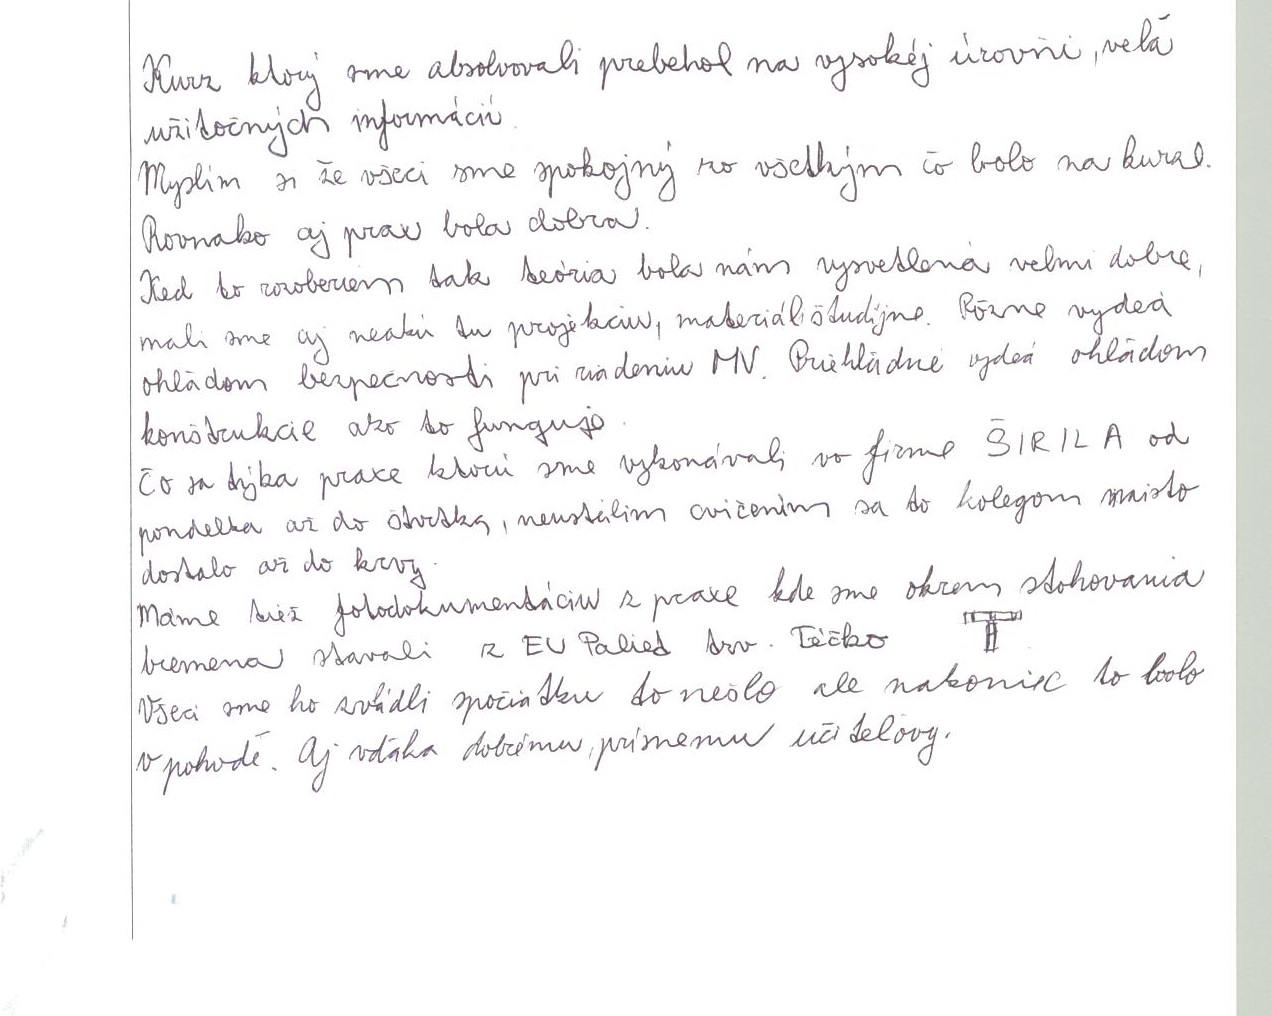 Kurz ktorý sme absolvovali prebehol na vysokéj úrovni, velá
užitočných informácií.
Myslím si že všeci sme spokojný zo všetkým čo bolo na kurze.
Rovnako aj prax bola dobra.
Ked to rozoberiem tak teória bola nám vysvetlená velmi dobre,
mali sme aj neakú tu projekciu, materiáli študijne. Rôzne vydeá
ohládom bezpečnosti pri riadeniu MV. Priehládné vydeá ohládom
konštrukcie ako to funguje.
Čo sa týka praxe ktorú sme vykonávali vo firme ŠIRILA od
pondelka až do štvrtka, neustálim cvičením sa to kolegom maisto
dostalo až do krvy.
Máme tiež fotodokumentáciu z praxe kde sme okrem stohovania
bremena stavali z EU Paliet tzv. Téčko
Všeci sme ho zvládli spočiatku to nešlo ale nakoniec to bolo
v pohodě. Aj vďaka dobrému, prísnemu učitelovy.